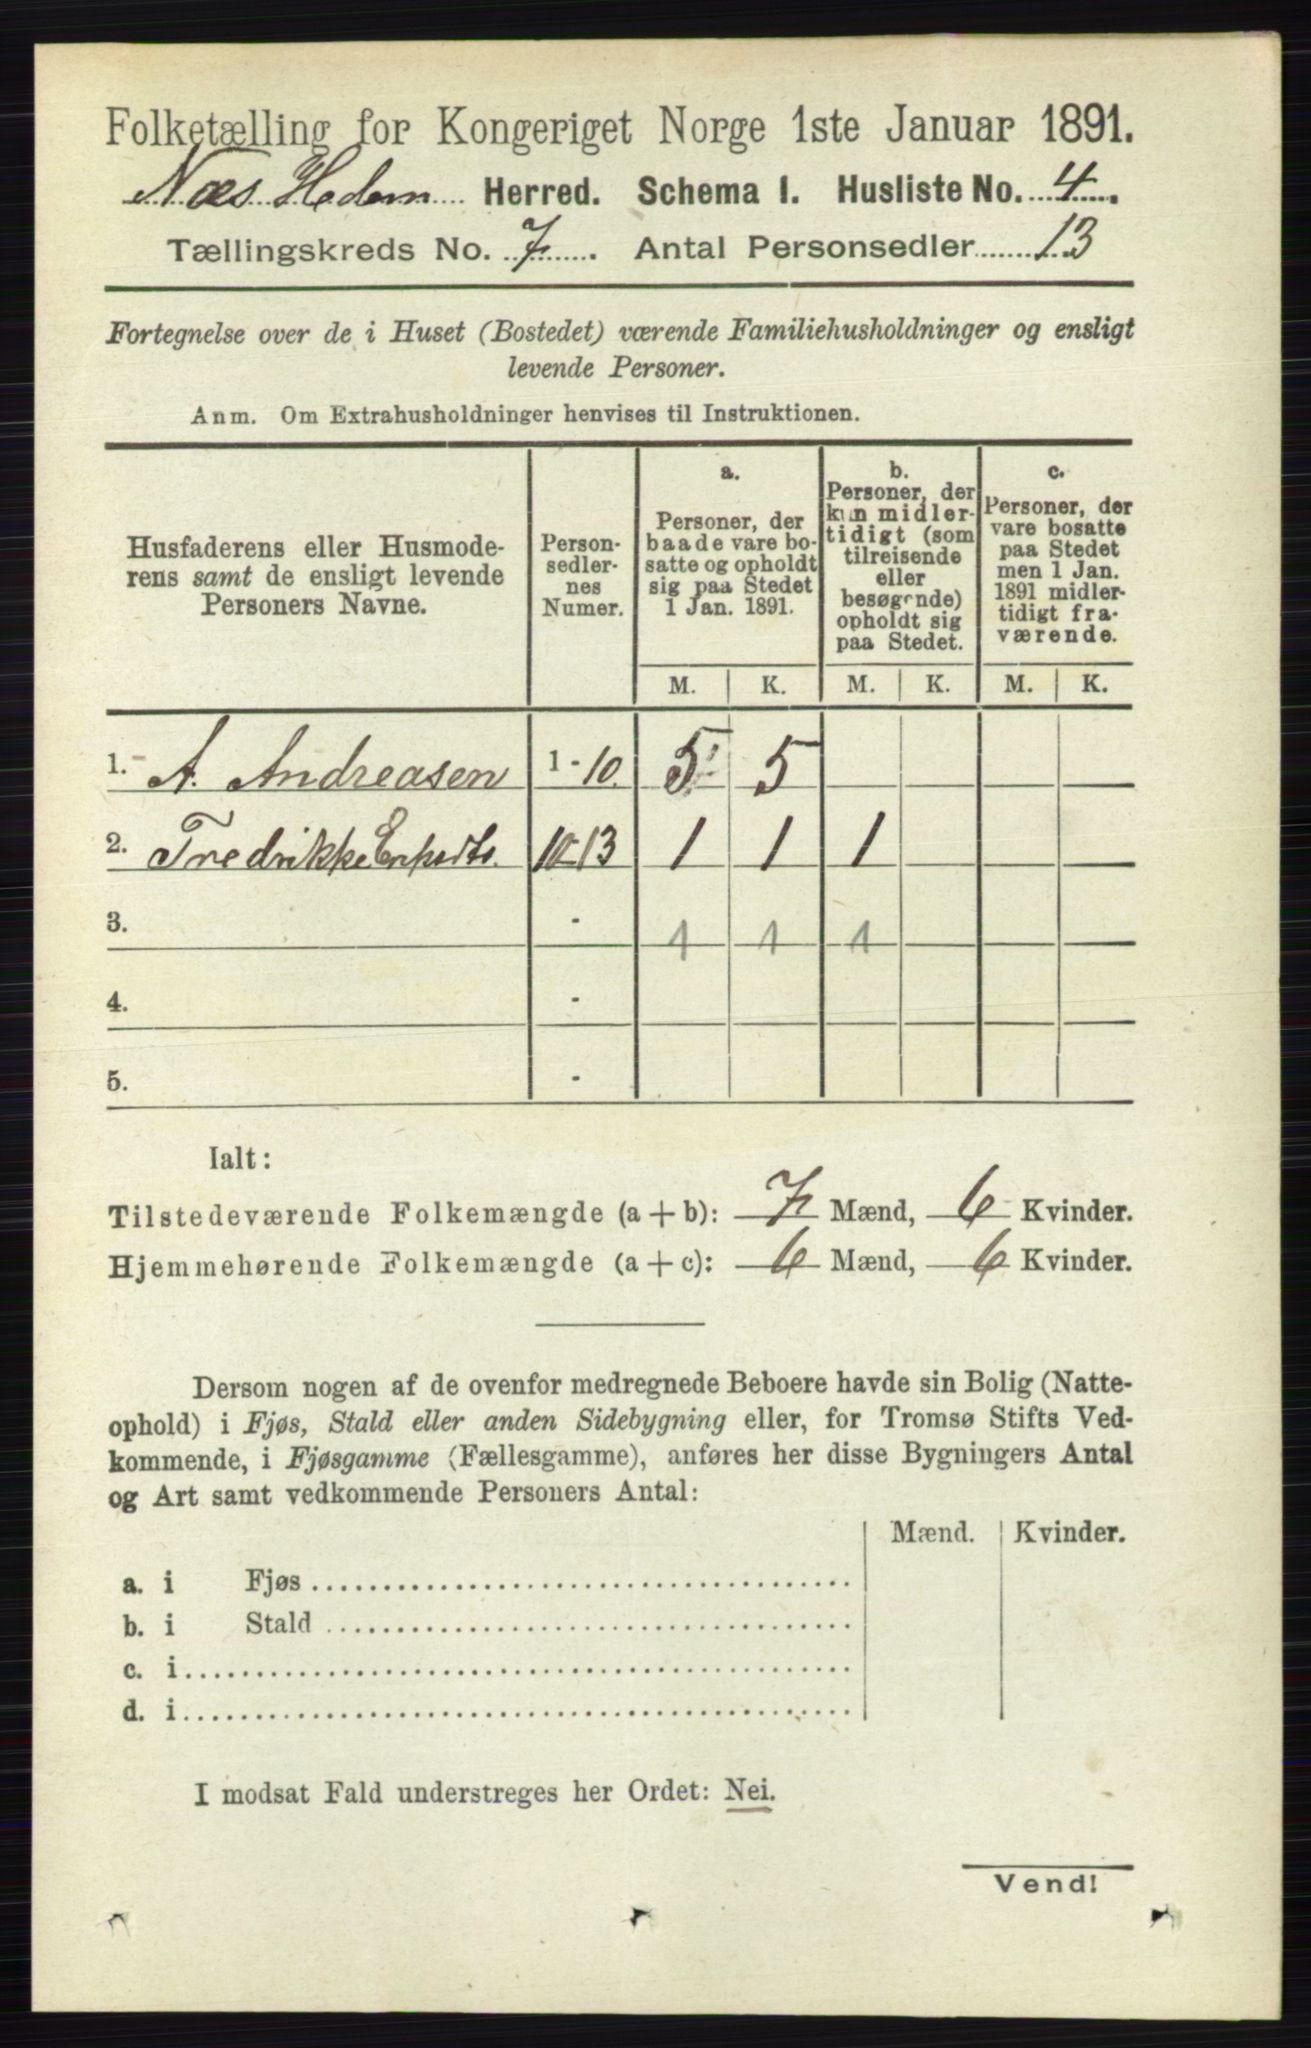 Folketælling for Kongeriget Norge 1ste Januar 1891.
Næs Hedem Herred. Schema I. Husliste No. 4.
Tællingskreds No. 7. Antal Personsedler 13
Fortegnelse over de i Huset (Bostedet) værende Familiehusholdninger og ensligt
levende Personer.
Anm. Om Extrahusholdninger henvises til Instruktionen.
Husfaderens eller Husmode-
rens samt de ensligt levende
Personers Navne.
Person-
sedler-
nes
Numer.
a.
Personer, der
baade vare bo-
satte og opholdt
sig paa Stedet
1 Jan. 1891.
b.
Personer, der
kun midler-
tidigt (som
tilreisende
eller
besøgende)
opholdt sig
paa Stedet.
c.
Personer, der
vare bosatte
paa Stedet
men 1 Jan.
1891 midler-
tidigt fra-
værende.
M. K. M. K. M. K.
1. A. Andreasen 1-10. 5 5
2. Fredrikke 10-13 1 1 1
3. - 1 1 1
4. -
5. -
Ialt:
Tilstedeværende Folkemængde (a+b): 7 Mænd, 6 Kvinder.
Hjemmehørende Folkemængde (a+c): 6 Mænd, 6 Kvinder.
Dersom nogen af de ovenfor medregnede Beboere havde sin Bolig (Natte-
ophold) i Fjøs, Stald eller anden Sidebygning eller, for Tromsø Stifts Ved-
kommende, i Fjøsgamme (Fællesgamme), anføres her disse Bygningers Antal
og Art samt vedkommende Personers Antal:
Mænd. Kvinder.
a. i Fjøs
b. i Stald
c. i
d. i
I modsat Fald understreges her Ordet: Nei.
Vend!